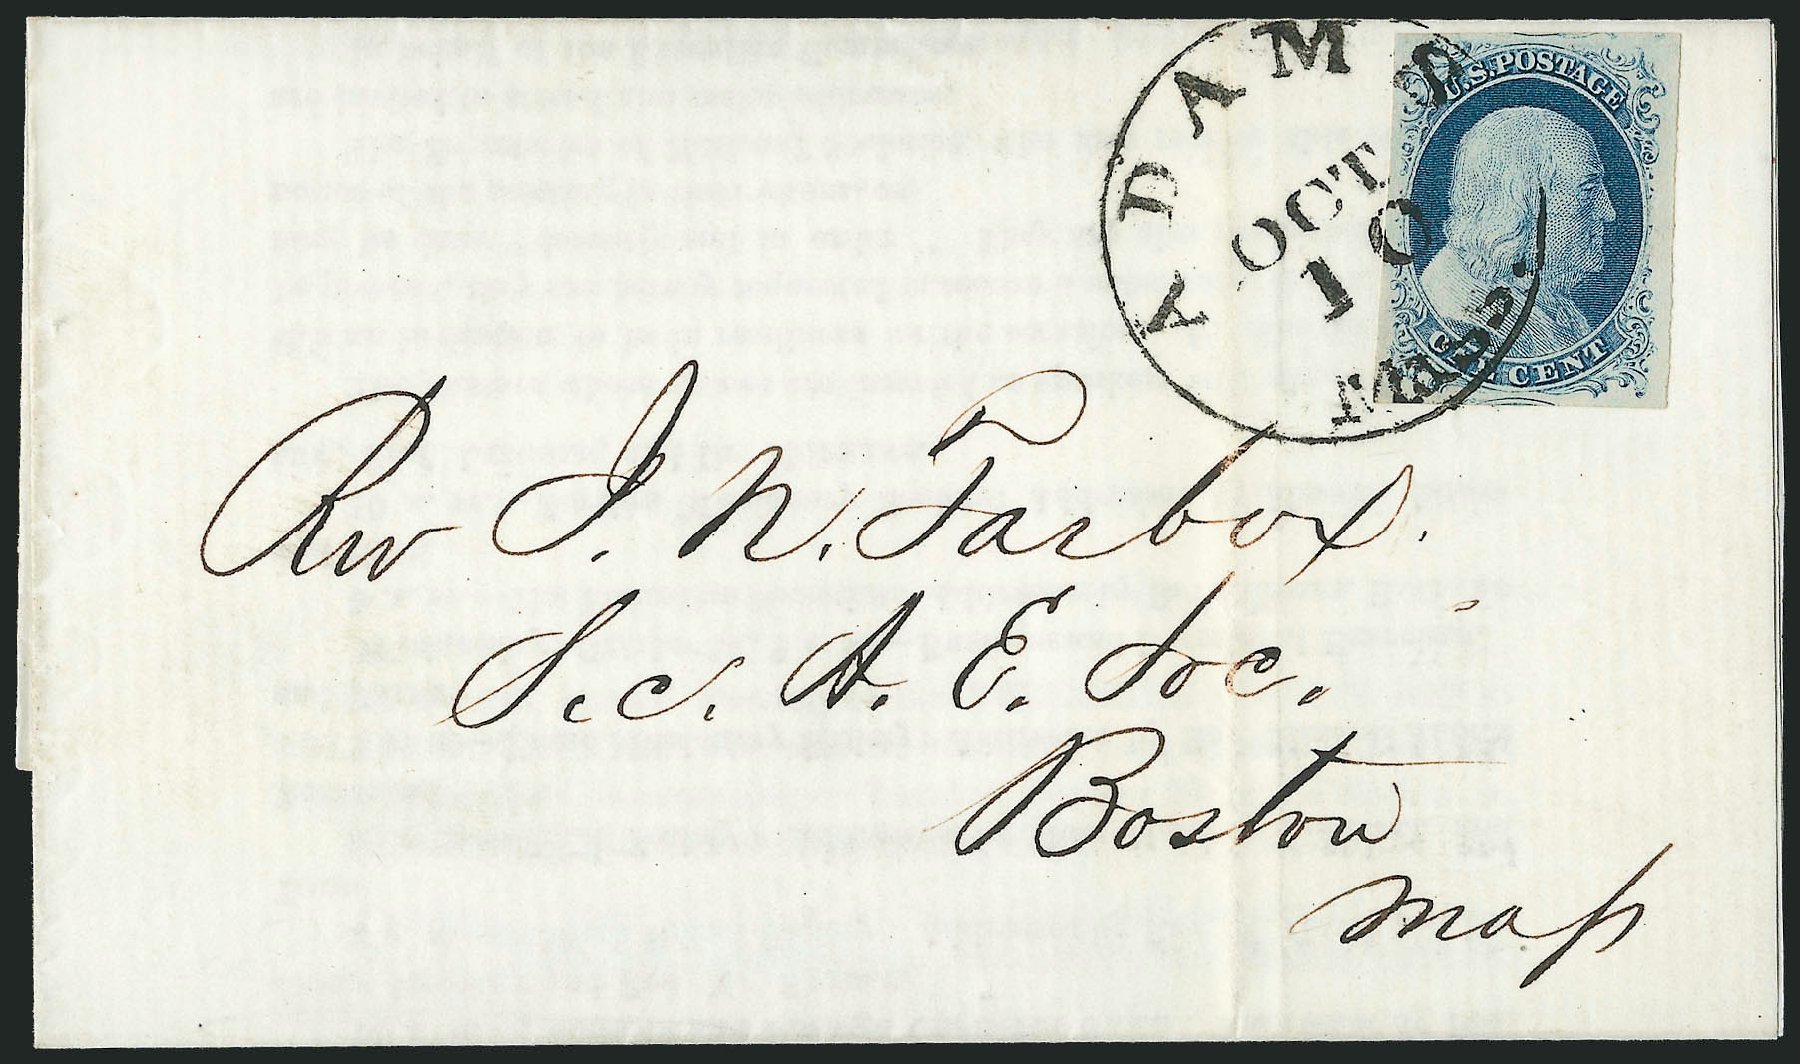 ADAMS
OCT
10
Mass.
U.S. POSTAGE
ONE CENT
Rev I. N. Tarbox.
Sec. A. E. Soc.
Boston
Mass